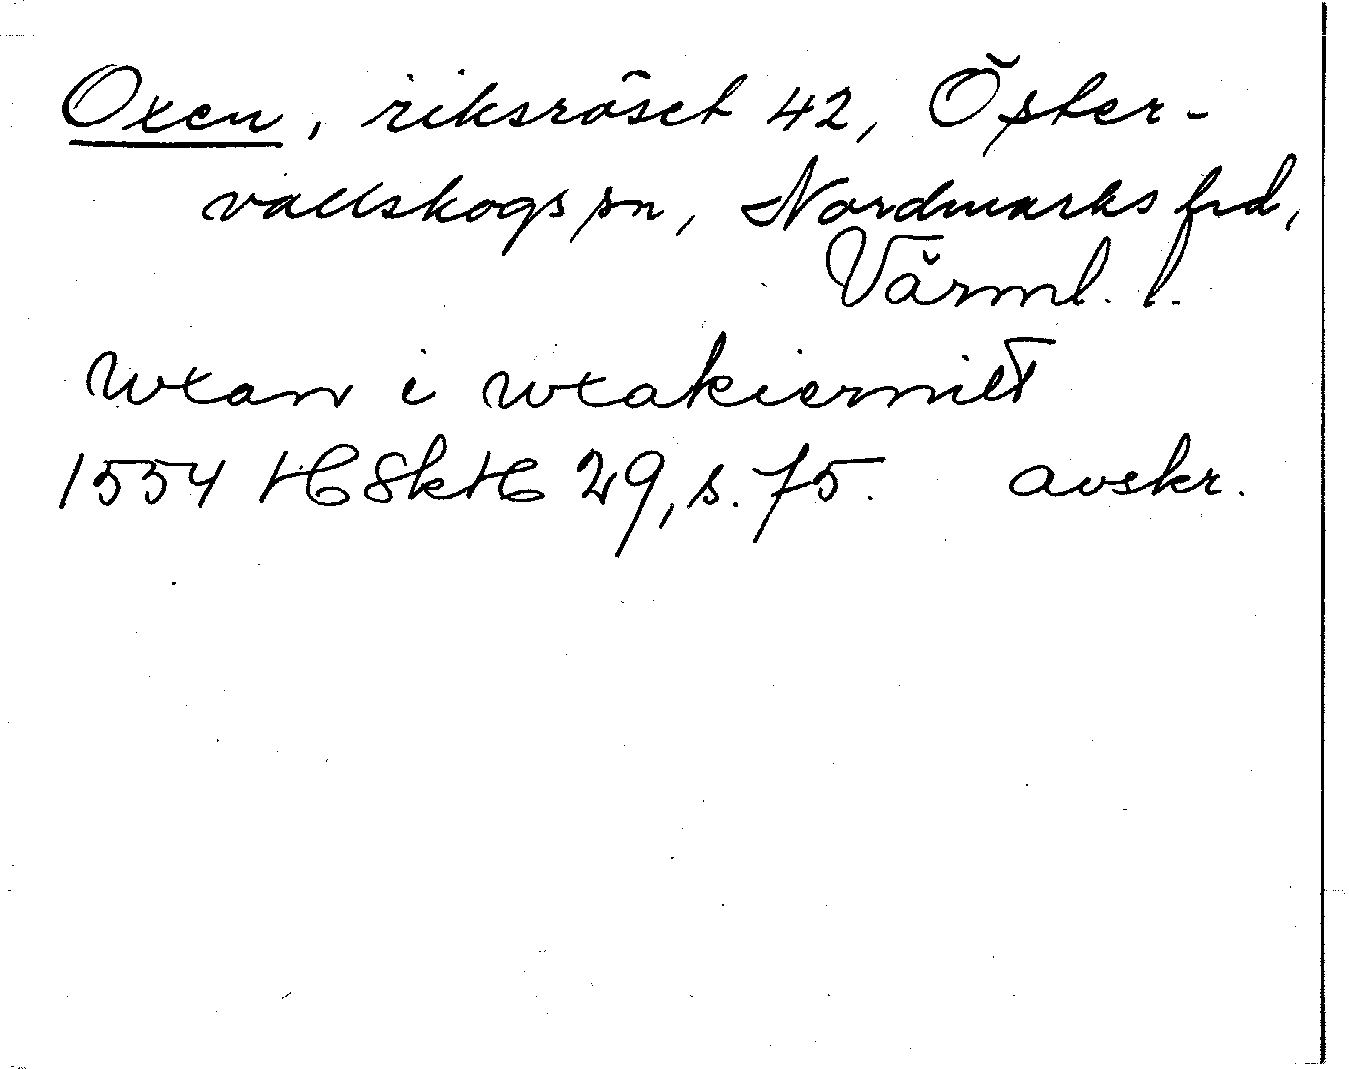 Oxen, riksröset 42, Öster-
vallskogs sn, Nordmarks hd,
Värml. l.
wxan i wxakiernitt
1554 HSkH 29, s. 75. avskr.